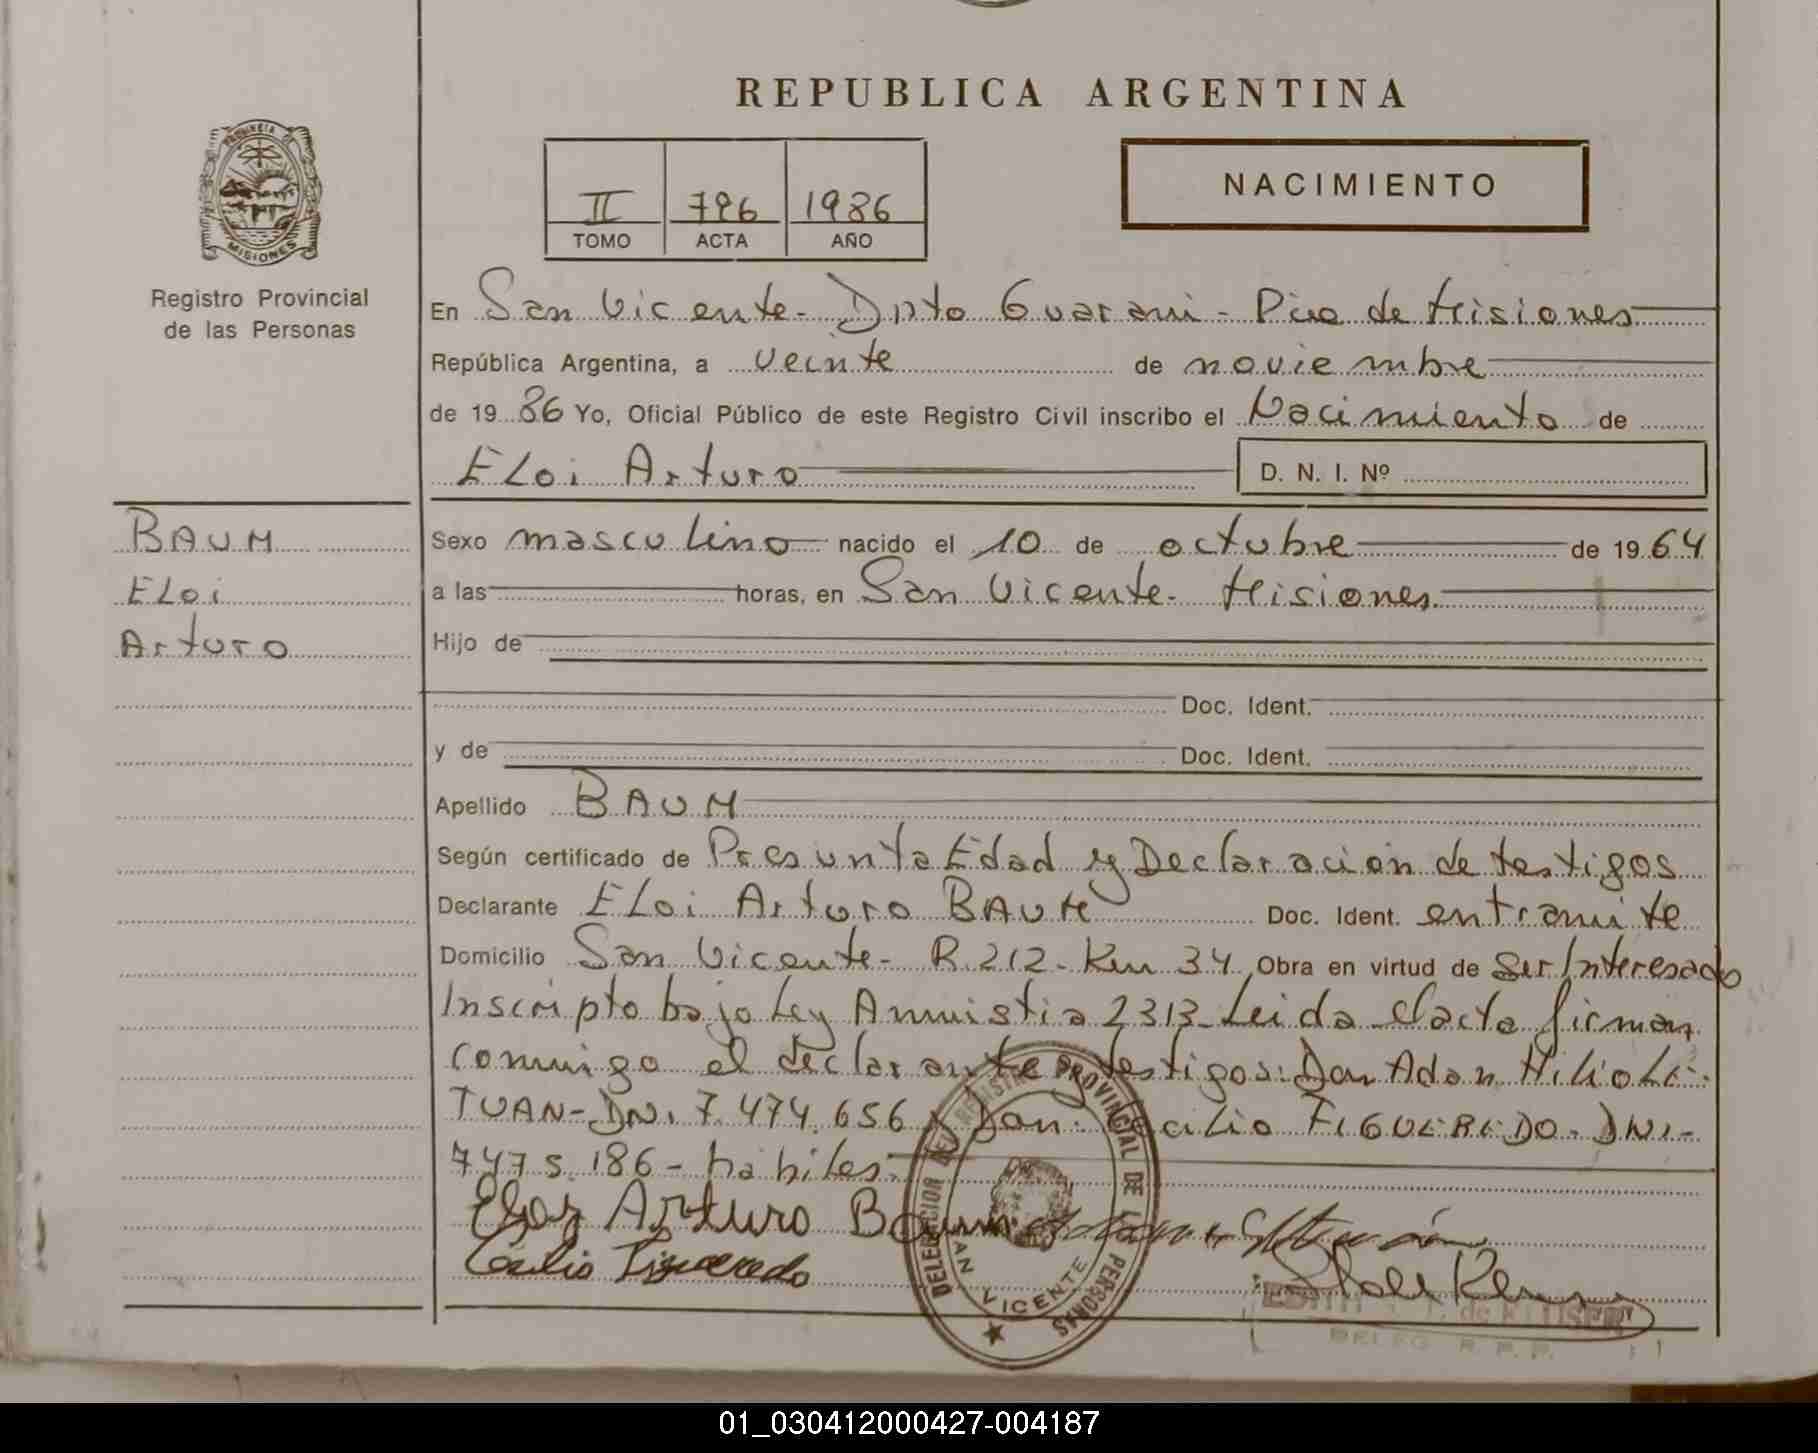 REPUBLICA ARGENTINA
PROVINCIA
MISIONES
Registro Provincial
de las Personas
II 796 1986
TOMO ACTA AÑO
NACIMIENTO
En San Vicente - Dpto Guarani - Pcia de Misiones
República Argentina, a veinte de noviembre
de 1986 Yo, Oficial Público de este Registro Civil inscribo el Nacimiento de
ELoi Arturo D. N. I. Nº
BAUM
ELoi
Arturo
Sexo masculino nacido el 10 de octubre de 1964
a las horas, en San Vicente - Misiones
Hijo de
Doc. Ident.
y de Doc. Ident.
Apellido BAUM
Según certificado de Presunta Edad y Declaración de testigos
Declarante ELoi Arturo BAUM Doc. Ident. entramite
Domicilio San Vicente - R.212 - Km 34 Obra en virtud de Ser Interesado
Inscripto bajo Ley Amnistia 2313 - Leida el acta firman
conmigo el declarante y testigos: Don Adan
TUAN - DNI 7.474.656 y Don Cecilio FIGUEREDO - DNI -
7475.186 - habiles.
Eloi Arturo Baum
Cecilio Figueredo
DELEGACION DEL REGISTRO PROVINCIAL DE LAS PERSONAS
SAN VICENTE
DELEG R. P. P.
01_030412000427-004187